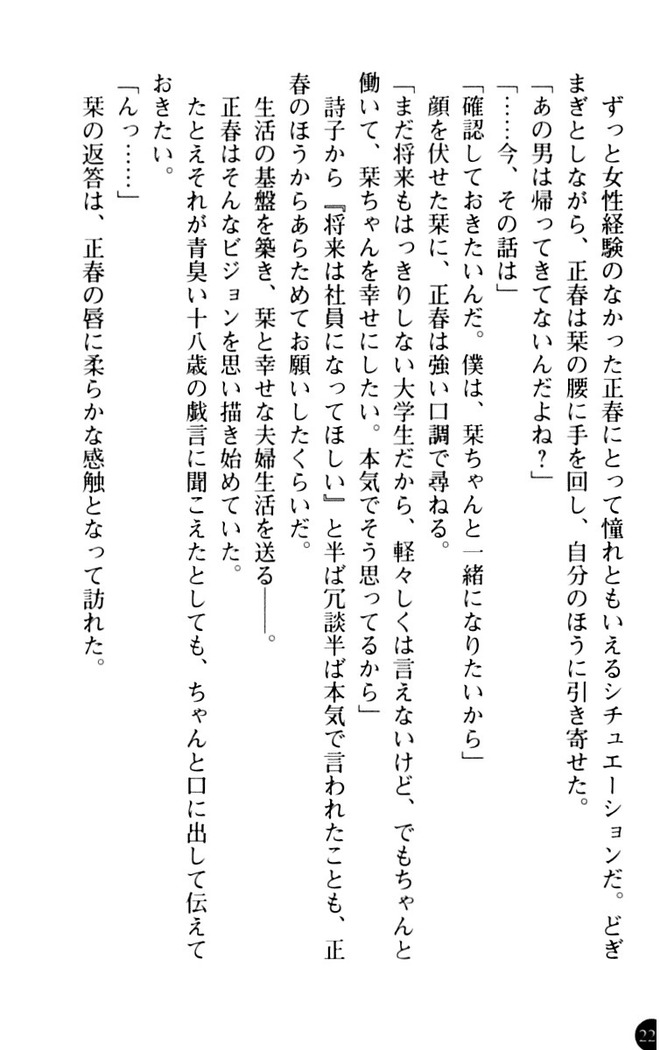 ずっと女性経験のなかった正春にとって憧れともいえるシチュエーションだ。どぎ
まぎとしながら、正春は栞の腰に手を回し、自分のほうに引き寄せた。
「あの男は帰ってきてないんだよね?」
「……今、その話は」
「確認しておきたいんだ。僕は、栞ちゃんと一緒になりたいから」
顔を伏せた栞に、正春は強い口調で尋ねる。
「まだ将来もはっきりしない大学生だから、軽々しくは言えないけど、でもちゃんと
働いて、栞ちゃんを幸せにしたい。本気でそう思ってるから」
詩子から『将来は社員になってほしい』と半ば冗談半ば本気で言われたことも、正
春のほうからあらためてお願いしたくらいだ。
生活の基盤を築き、栞と幸せな夫婦生活を送る――。
正春はそんなビジョンを思い描き始めていた。
たとえそれが青臭い十八歳の戯言に聞こえたとしても、ちゃんと口に出して伝えて
おきたい。
「んっ……」
栞の返答は、正春の唇に柔らかな感触となって訪れた。
22